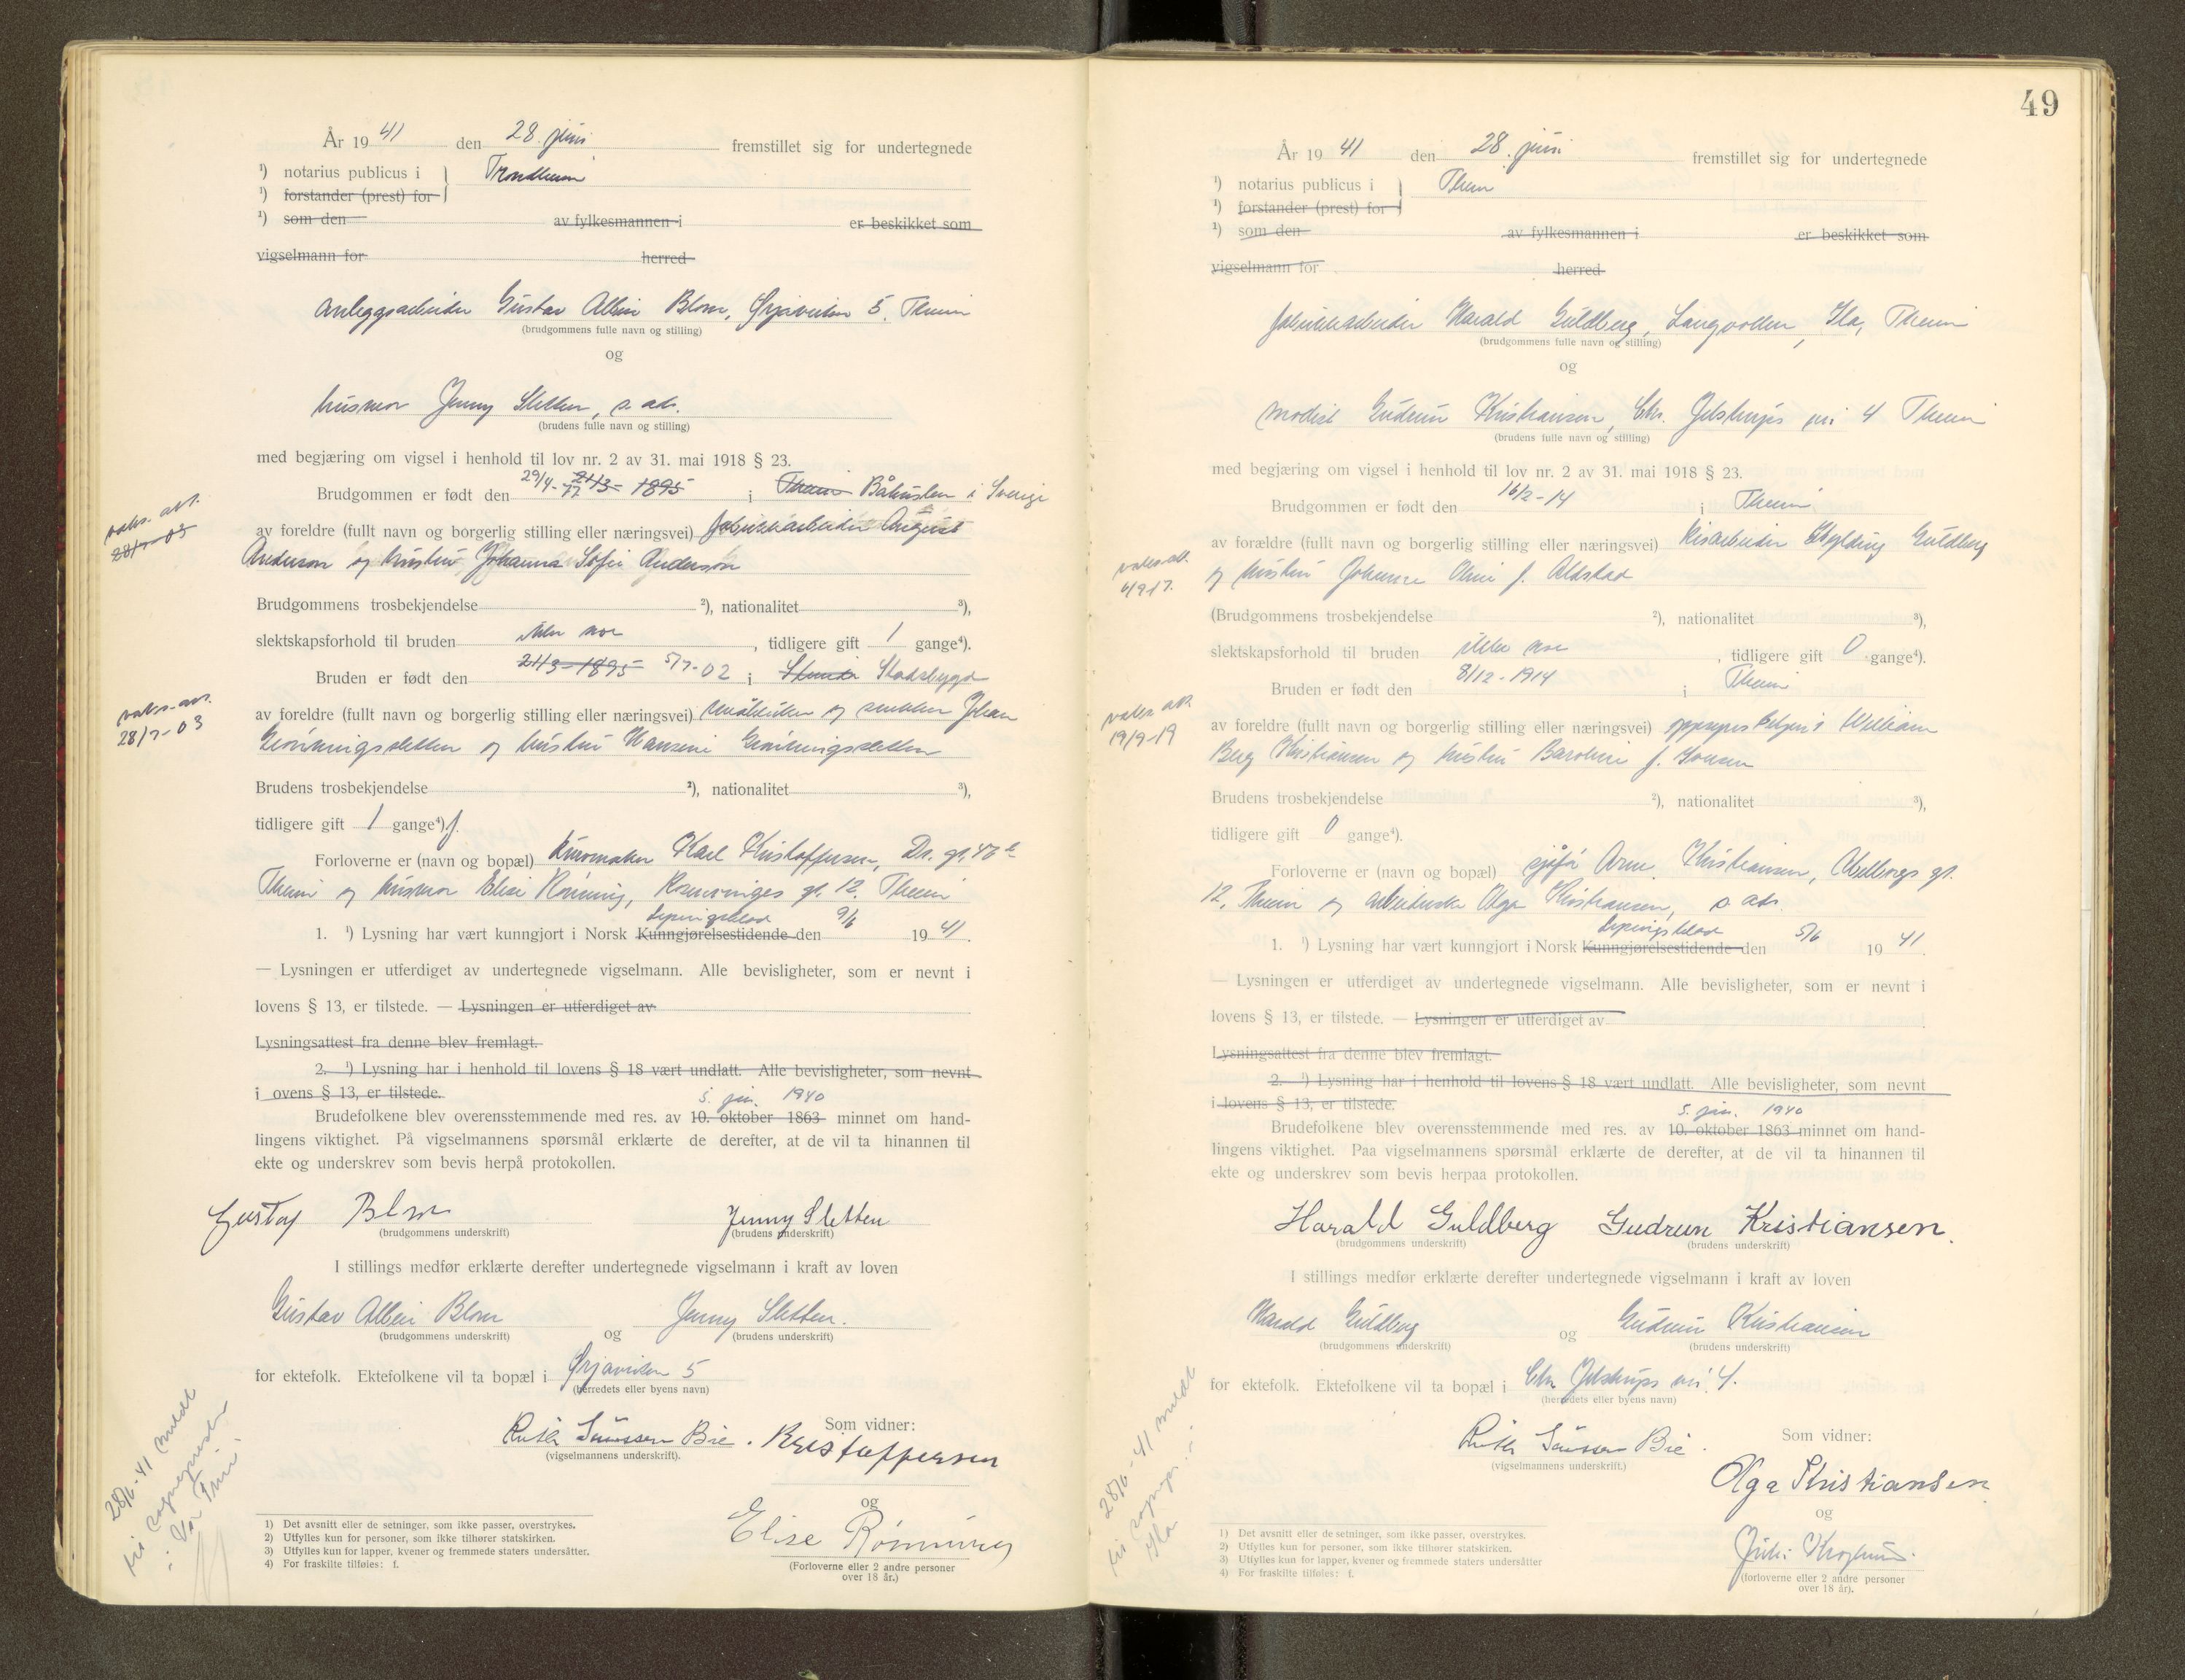 År 19 41 den 28. juni fremstillet sig for undertegnede
¹) notarius publicus i } Trondheim
¹) forstander (prest) for
¹) som den av fylkesmannen i er beskikket som
vigselmann for herred
Anleggsarbeider Gustav Albin Blom, 5, Theim
(brudgommens fulle navn og stilling)
og
husmor Jenny Sletten, s. adr.
(brudens fulle navn og stilling)
med begjæring om vigsel i henhold til lov nr. 2 av 31. mai 1918 § 23.
Brudgommen er født den 29/4-77 21/3-1895 i Theim Båhuslen i Sverige
vaks. att.
28/7-03
av foreldre (fullt navn og borgerlig stilling eller næringsvei) fabrikkarbeider August
Anderson og hustru Johanna Sofie Anderson
Brudgommens trosbekjendelse ²), nationalitet ³),
slektskapsforhold til bruden ikke noe, tidligere gift 1 gange⁴).
Bruden er født den 21/3-1895 5/7-02 i Stadsbygd
vaks. att.
28/7-03
av foreldre (fullt navn og borgerlig stilling eller næringsvei) småbruker og snekker Johan
Grønningsletten og hustru Hansine Grønningsletten
Brudens trosbekjendelse ²), nationalitet ³),
tidligere gift 1 gange⁴) f.
Forloverne er (navn og bopæl) Karl Kristoffersen, Dr. gt. 47 b
Theim og husmor Elise Rønning, gt. 12. Theim
Lysingsblad 9/6
1. ¹) Lysning har vært kunngjort i Norsk Kunngjørelsestidende den 19 41.
— Lysningen er utferdiget av undertegnede vigselmann. Alle bevisligheter, som er nevnt i
lovens § 13, er tilstede. — Lysningen er utferdiget av
Lysningsattest fra denne blev fremlagt.
2. ¹) Lysning har i henhold til lovens § 18 vært undlatt. Alle bevisligheter, som nevnt
i ovens § 13, er tilstede.
5. jan. 1940
Brudefolkene blev overensstemmende med res. av 10. oktober 1863 minnet om hand-
lingens viktighet. På vigselmannens spørsmål erklærte de derefter, at de vil ta hinannen til
ekte og underskrev som bevis herpå protokollen.
Gustaf Blom Jenny Sletten
(brudgommens underskrift) (brudens underskrift)
I stillings medfør erklærte derefter undertegnede vigselmann i kraft av loven
Gustav Albin Blom og Jenny Sletten.
(brudgommens underskrift) (brudens underskrift)
for ektefolk. Ektefolkene vil ta bopæl i 5
(herredets eller byens navn)
Som vidner:
Ruth Bie. Kristoffersen
(vigselmannens underskrift).
og
Elise Rønning
(Forloverne eller 2 andre personer
over 18 år.)
28/6-41 meldt
til sognepresten
i Vår Frue
1) Det avsnitt eller de setninger, som ikke passer, overstrykes.
2) Utfylles kun for personer, som ikke tilhører statskirken.
3) Utfylles kun for lapper, kvener og fremmede staters undersåtter.
4) For fraskilte tilføies: f.
49
År 19 41 den 28. juni fremstillet sig for undertegnede
¹) notarius publicus i } Theim
¹) forstander (prest) for
¹) som den av fylkesmannen i er beskikket som
vigselmann for herred
fabrikkarbeider Harald Guldberg, Langvollen, Ila, Theim
(brudgommens fulle navn og stilling)
og
modist Gudrun Kristiansen, Chr. Jelstrups vei 4 Theim
(brudens fulle navn og stilling)
med begjæring om vigsel i henhold til lov nr. 2 av 31. mai 1918 § 23.
Brudgommen er født den 16/2-14 i Theim
vaks. att.
4/9-17.
av forældre (fullt navn og borgerlig stilling eller næringsvei) Guldberg
og hustru f. Aldstad
(Brudgommens trosbekjendelse ²), nationalitet ³),
slektskapsforhold til bruden ikke noe, tidligere gift 0 gange⁴).
Bruden er født den 8/12-1914 i Theim
vaks. att.
19/9-19
av foreldre (fullt navn og borgerlig stilling eller næringsvei) William
Berg Kristiansen og hustru f.
Brudens trosbekjendelse ²), nationalitet ³),
tidligere gift 0 gange⁴).
Forloverne er (navn og bopæl) sjåfør Arne Kristiansen, gt.
12, Theim og arbeiderske Olga Kristiansen, s. adr.
Lysingsblad 5/6
1. ¹) Lysning har vært kunngjort i Norsk Kunngjørelsestidende den 19 41.
— Lysningen er utferdiget av undertegnede vigselmann. Alle bevisligheter, som er nevnt i
lovens § 13, er tilstede. — Lysningen er utferdiget av
Lysningsattest fra denne blev fremlagt.
2. ¹) Lysning har i henhold til lovens § 18 vært undlatt. Alle bevisligheter, som nevnt
i lovens § 13, er tilstede.
5. jan. 1940
Brudefolkene blev overensstemmende med res. av 10. oktober 1863 minnet om hand-
lingens viktighet. Paa vigselmannens spørsmål erklærte de derefter, at de vil ta hinannen til
ekte og underskrev som bevis herpaa protokollen.
Harald Guldberg Gudrun Kristiansen.
(brudgommens underskrift) (brudens underskrift)
I stillings medfør erklærte derefter undertegnede vigselmann i kraft av loven
Harald Guldberg og Gudrun Kristiansen
(brudgommens underskrift) (brudens underskrift)
for ektefolk. Ektefolkene vil ta bopæl i Chr. Jelstrups vei 4.
(herredets eller byens navn)
Som vidner:
Ruth Bie.
(vigselmannens underskrift.)
Olga Kristiansen
og
(forloverne eller 2 andre personer
over 18 år).
28/6-41 meldt
til sognepr. i
Ila
1) Det avsnitt eller de setninger, som ikke passer, overstrykes.
2) Utfylles kun for personer, som ikke tilhører statskirken.
3) Utfylles kun for lapper, kvener og fremmede staters undersåtter
4) For fraskilte tilføies: f.